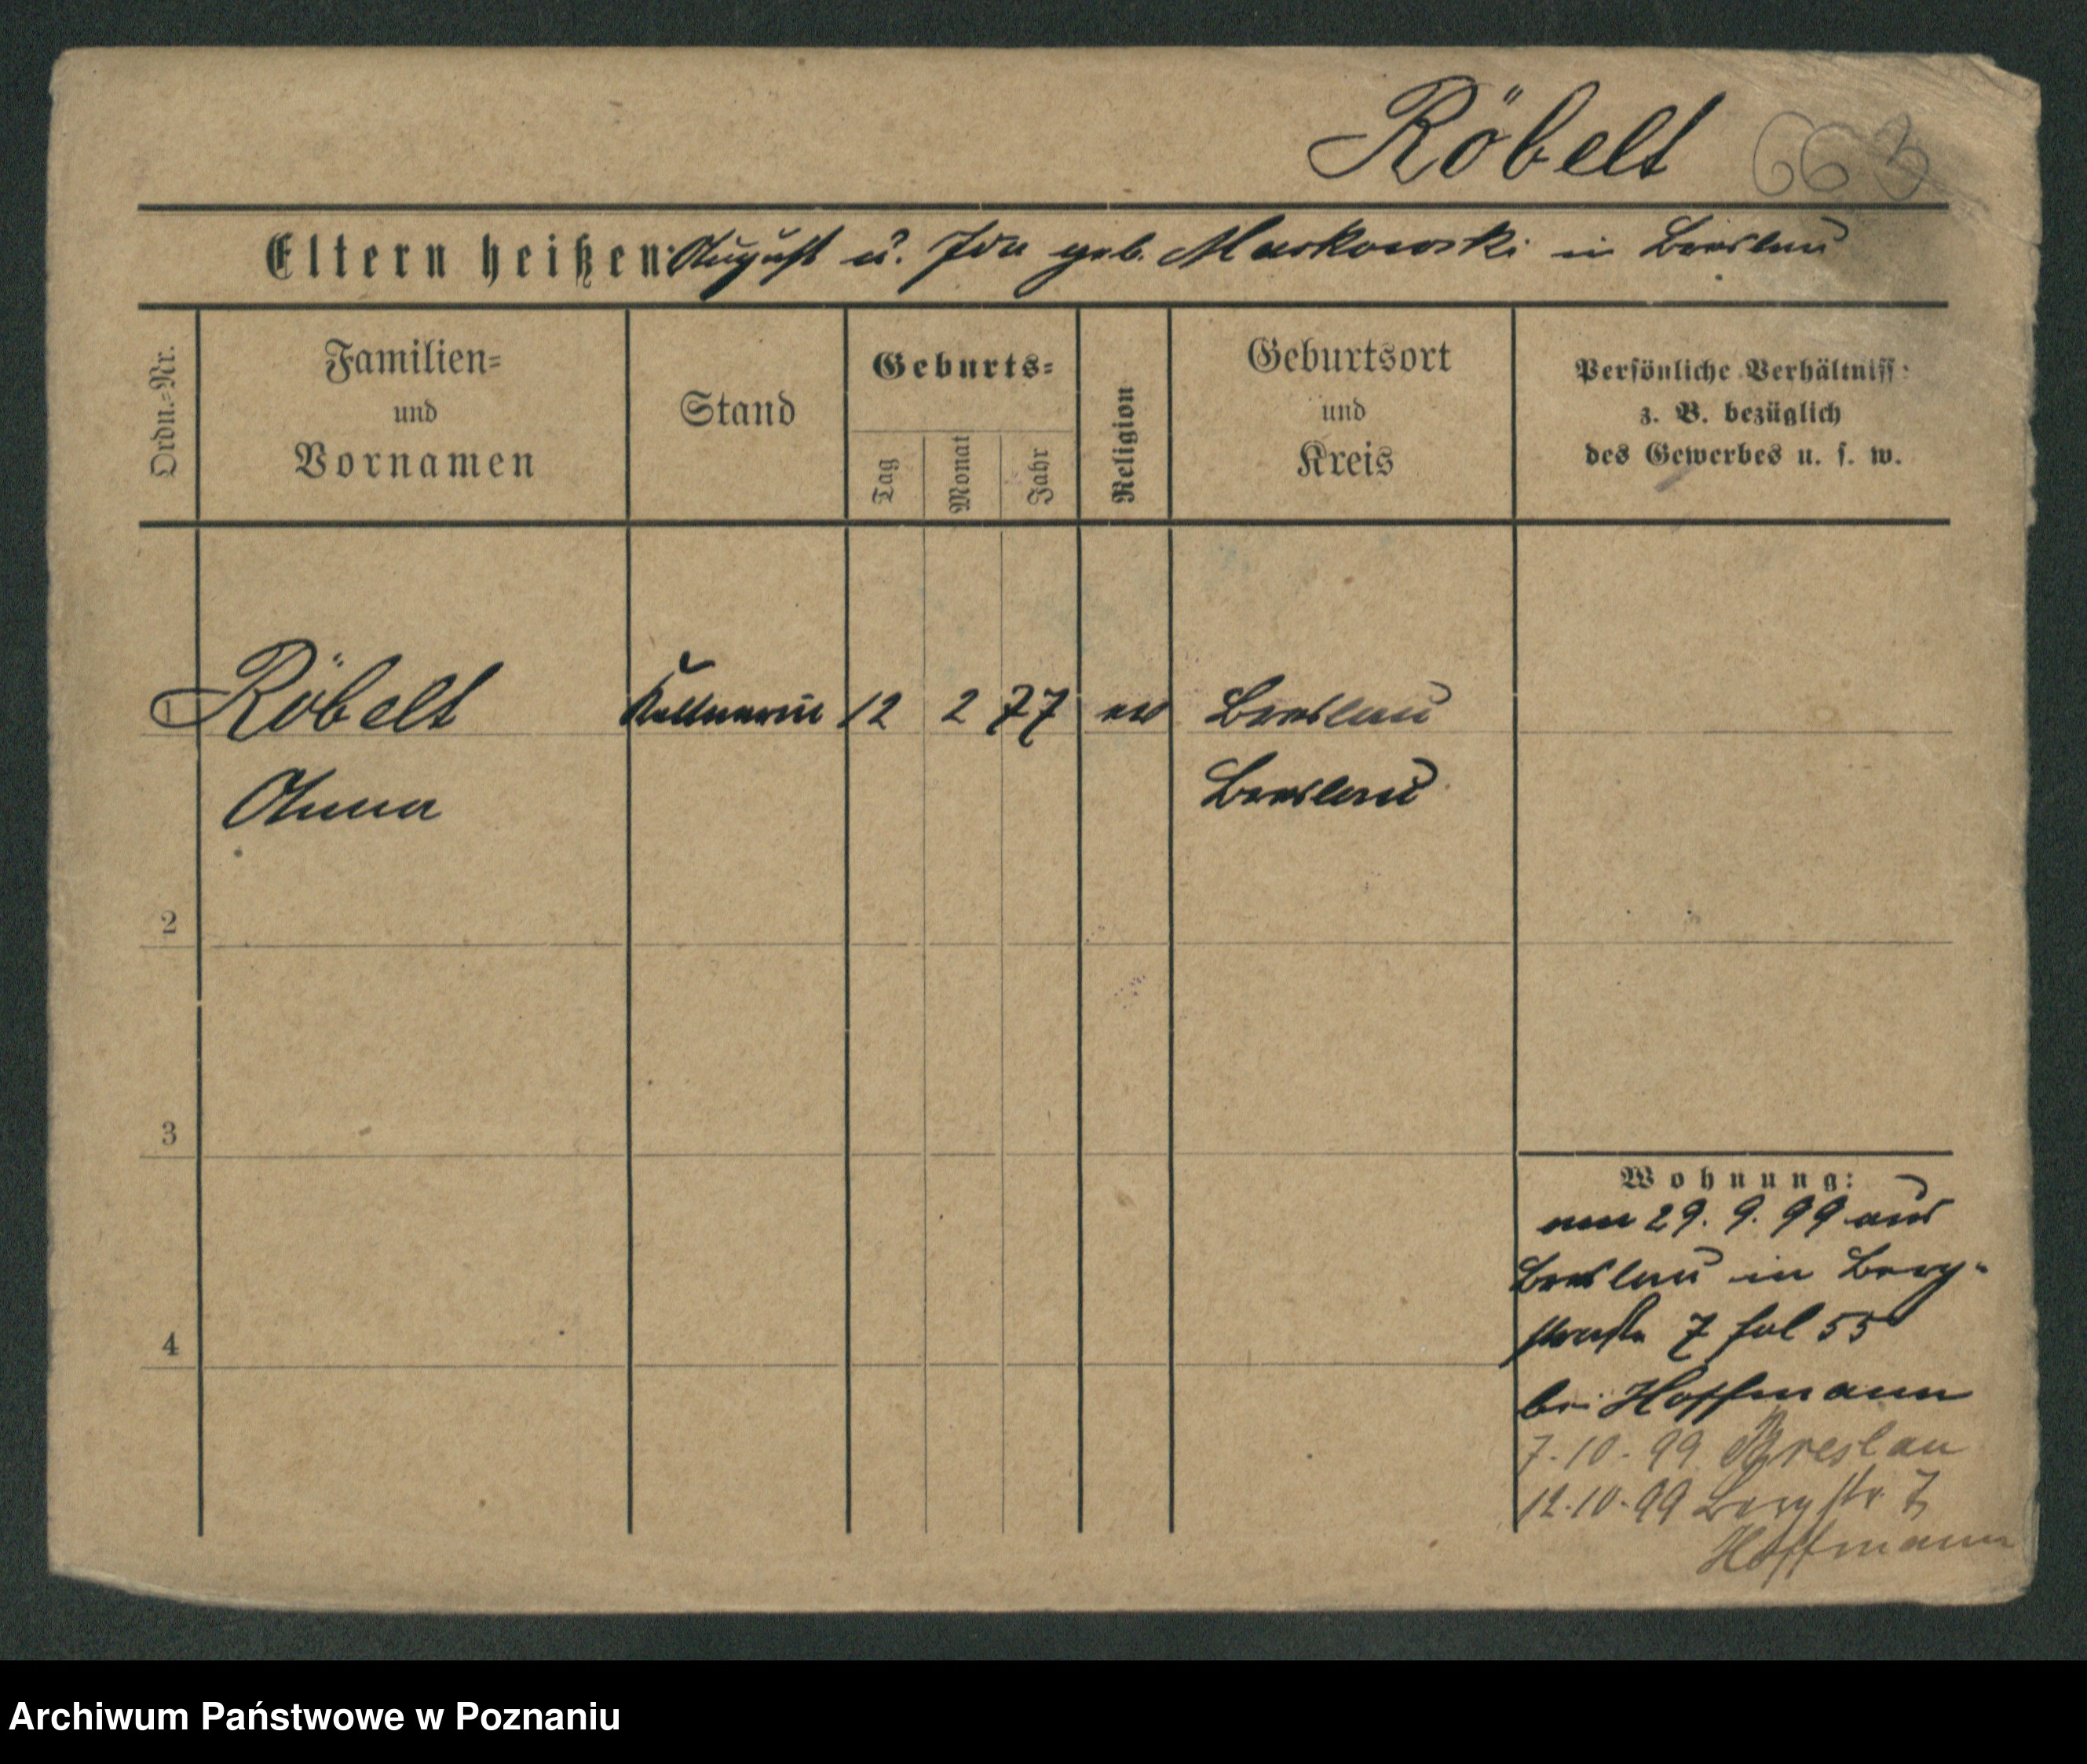 Röbelt 663
Eltern heißen: August u. Ida geb. Markowski in Breslau
Ordn.-Nr.
Familien-
und
Vornamen
Stand
Geburts-
Tag
Monat
Jahr
Religion
Geburtsort
und
Kreis
Persönliche Verhältniss:
z. B. bezüglich
des Gewerbes u. s. w.
1 Röbelt Kellnerin 12 2 77 ev Breslau
Anna Breslau
2
3
4
Wohnung:
am 29. 9. 99 aus
Breslau in Berg-
straße 7 fol 55
bei Hoffmann
7.10.99 Breslau
12.10.99 Bergstr 7
Hoffmann
Archiwum Państwowe w Poznaniu